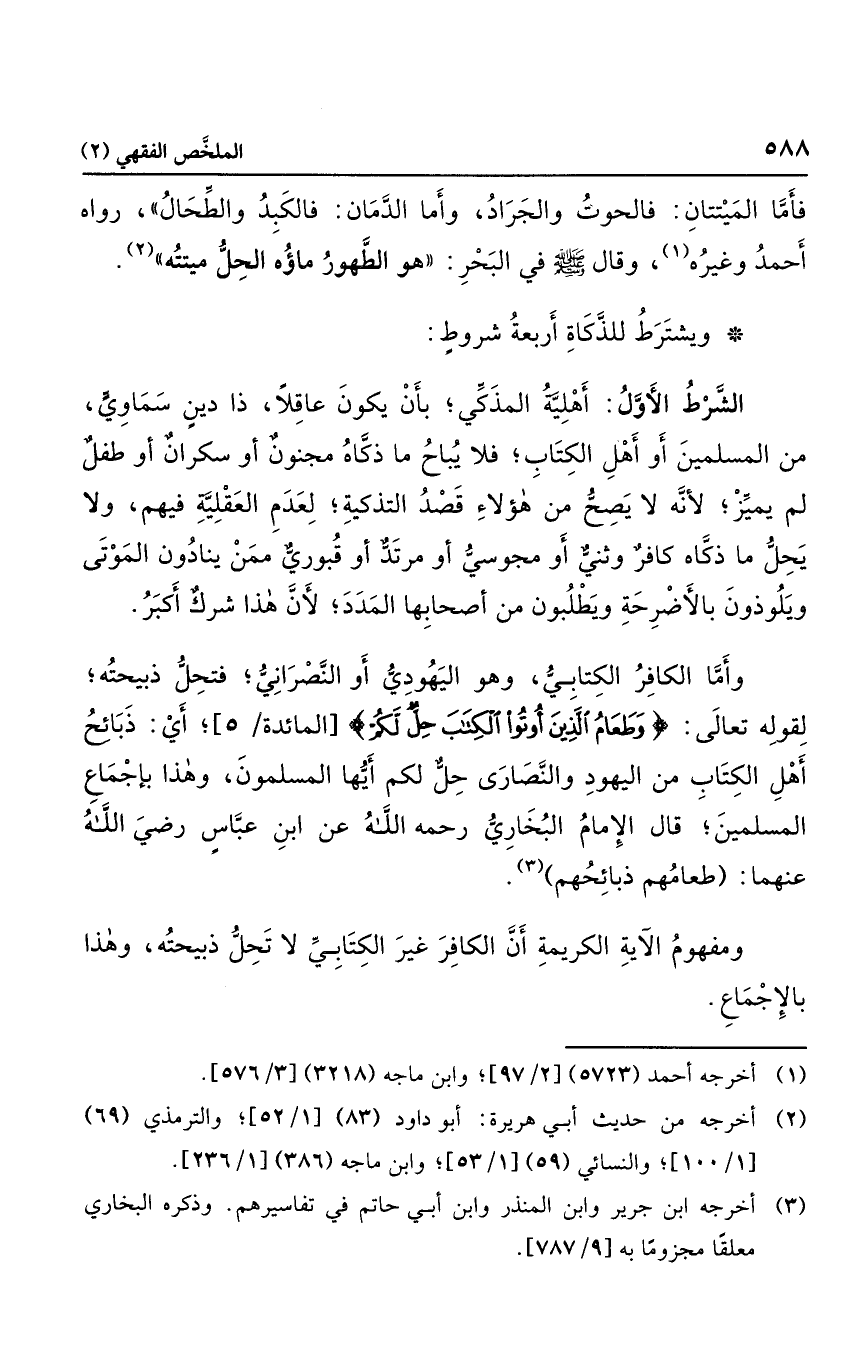 ٥٨٨ الملخَّص الفقهي (٢)
فأَمَّا المَيْتتانِ: فالحوتُ والجَرَادُ، وأَما الدَّمَان: فالكَبِدُ والطِّحَالُ»، رواه
أَحمدُ وغيرُه(١)، وقال ﷺ في البَحْرِ: «هو الطَّهورُ ماؤُه الحِلُّ ميتتُه»(٢).
* ويشتَرَطُ للذَّكَاةِ أَربعةُ شروطٍ:
الشَّرْطُ الأَوَّلُ: أَهْلِيَّةُ المذَكِّي؛ بأَنْ يكونَ عاقِلاً، ذا دينٍ سَمَاويٍّ،
من المسلمينَ أَو أَهْلِ الكِتَابِ؛ فلا يُباحُ ما ذكَّاهُ مجنونٌ أو سكرانٌ أو طفلٌ
لم يميِّزْ؛ لأنَّه لا يَصِحُّ من هٰؤلاءِ قَصْدُ التذكيةِ؛ لِعَدَمِ العَقْلِيَّةِ فيهم، ولا
يَحِلُّ ما ذكَّاه كافرٌ وثنيٌّ أَو مجوسيٌّ أو مرتَدٌّ أو قُبوريٌّ ممَنْ ينادُون المَوْتَى
ويَلُوذونَ بالأَضْرِحَةِ ويَطْلُبون من أصحابِها المَدَدَ؛ لأَنَّ هٰذا شركٌ أَكبَرُ.
وأَمَّا الكافرُ الكِتابيُّ، وهو اليَهُودِيُّ أَو النَّصْرَانِيُّ؛ فتحلُّ ذبيحتُه؛
لِقولِه تعالَى: ﴿وَطَعَامُ ٱلَّذِينَ أُوتُوا۟ ٱلْكِتَٰبَ حِلٌّ لَّكُمْ﴾ [المائدة/ ٥]؛ أَيْ: ذَبَائِحُ
أَهْلِ الكِتَابِ من اليهودِ والنَّصَارَى حِلٌّ لكم أَيُّها المسلمونَ، وهٰذا بإجْمَاعِ
المسلمينَ؛ قال الإمامُ البُخَارِيُّ رحمه اللَّـهُ عن ابنِ عبَّاسٍ رضيَ اللَّـهُ
عنهما: (طعامُهم ذبائِحُهم)(٣).
ومفهومُ الآيةِ الكريمةِ أَنَّ الكافرَ غيرَ الكِتَابِيِّ لا تَحِلُّ ذبيحتُه، وهٰذا
بالإِجْمَاعِ.
(١) أخرجه أحمد (٥٧٢٣) [٢/ ٩٧]؛ وابن ماجه (٣٢١٨) [٣/ ٥٧٦].
(٢) أخرجه من حديث أبي هريرة: أبو داود (٨٣) [١/ ٥٢]؛ والترمذي (٦٩)
[١/ ١٠٠]؛ والنسائي (٥٩) [١/ ٥٣]؛ وابن ماجه (٣٨٦) [١/ ٢٣٦].
(٣) أخرجه ابن جرير وابن المنذر وابن أبي حاتم في تفاسيرهم. وذكره البخاري
معلقًا مجزومًا به [٩/ ٧٨٧].